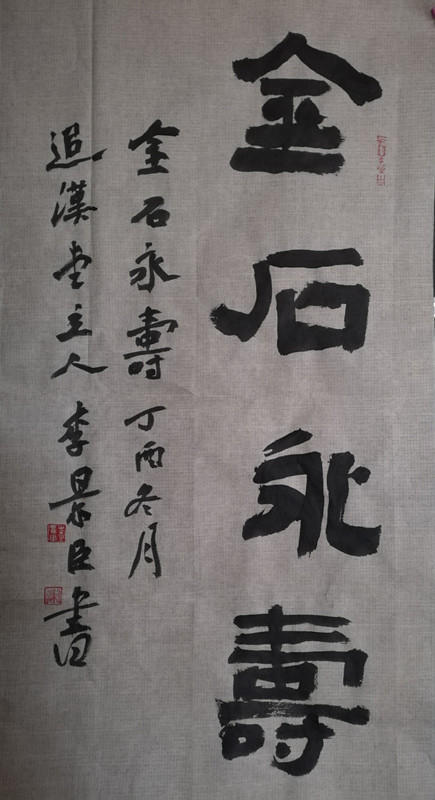 金石永壽
金石永壽丁酉冬月
追漢堂主人李景臣書